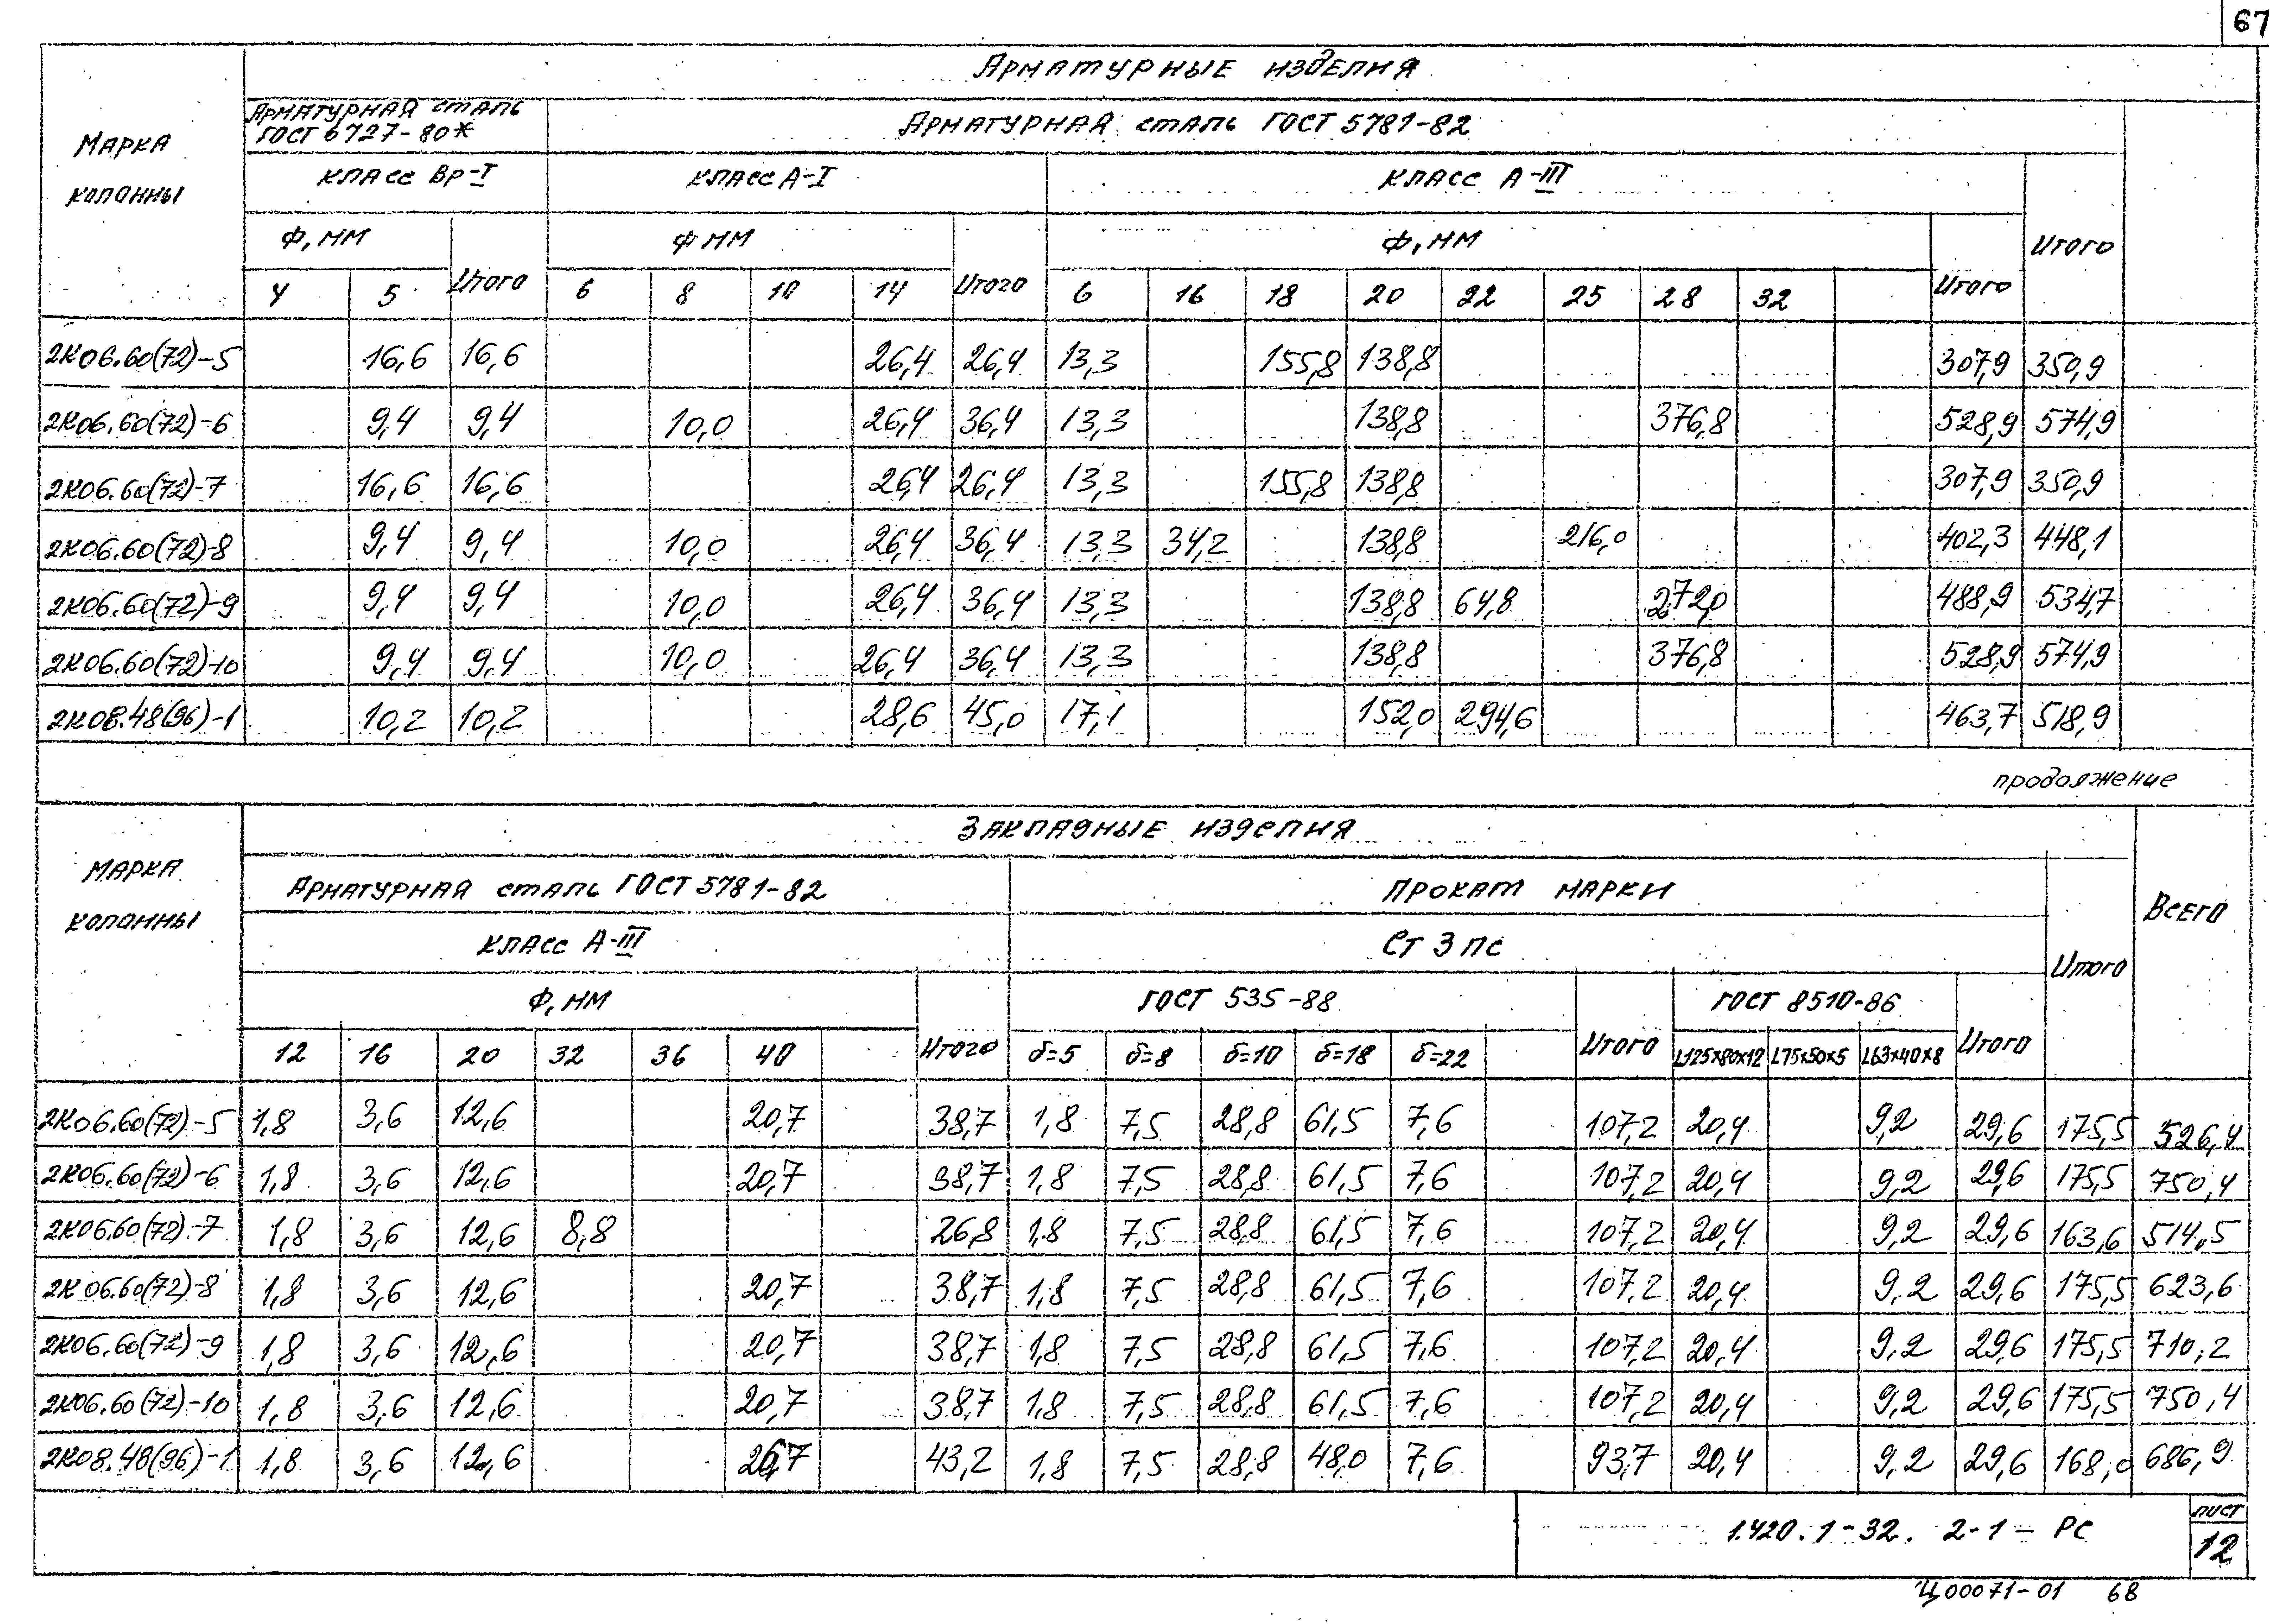 67
Арматурные изделия
Марка колонны
Арматурная сталь ГОСТ 6727-80*
Арматурная сталь ГОСТ 5781-82
класс Вр-I
класс А-I
класс А-III
Ф, мм
Ф мм
Ф, мм
Итого
4 5 Итого 6 8 10 14 Итого 6 16 18 20 22 25 28 32 Итого
2К06.60(72)-5 16,6 16,6 26,4 26,4 13,3 155,8 138,8 307,9 350,9
2К06.60(72)-6 9,4 9,4 10,0 26,4 36,4 13,3 138,8 376,8 528,9 574,9
2К06.60(72)-7 16,6 16,6 26,4 26,4 13,3 155,8 138,8 307,9 350,9
2К06.60(72)-8 9,4 9,4 10,0 26,4 36,4 13,3 34,2 138,8 216,0 402,3 448,1
2К06.60(72)-9 9,4 9,4 10,0 26,4 36,4 13,3 138,8 64,8 272,0 488,9 534,7
2К06.60(72)-10 9,4 9,4 10,0 26,4 36,4 13,3 138,8 376,8 528,9 574,9
2К08.48(96)-1 10,2 10,2 28,6 45,0 17,1 152,0 294,6 463,7 518,9
продолжение
Закладные изделия
Марка колонны
Арматурная сталь ГОСТ 5781-82
Прокат марки
Всего
класс А-III
Ст 3 пс
Итого
Ф, мм
ГОСТ 535-88
ГОСТ 8510-86
12 16 20 32 36 40 Итого δ=5 δ=8 δ=10 δ=18 δ=22 Итого L125х80х12 L75х50х5 L63х40х8 Итого
2К06.60(72)-5 1,8 3,6 12,6 20,7 38,7 1,8 7,5 28,8 61,5 7,6 107,2 20,4 9,2 29,6 175,5 526,4
2К06.60(72)-6 1,8 3,6 12,6 20,7 38,7 1,8 7,5 28,8 61,5 7,6 107,2 20,4 9,2 29,6 175,5 750,4
2К06.60(72)-7 1,8 3,6 12,6 8,8 26,8 1,8 7,5 28,8 61,5 7,6 107,2 20,4 9,2 29,6 163,6 514,5
2К06.60(72)-8 1,8 3,6 12,6 20,7 38,7 1,8 7,5 28,8 61,5 7,6 107,2 20,4 9,2 29,6 175,5 623,6
2К06.60(72)-9 1,8 3,6 12,6 20,7 38,7 1,8 7,5 28,8 61,5 7,6 107,2 20,4 9,2 29,6 175,5 710,2
2К06.60(72)-10 1,8 3,6 12,6 20,7 38,7 1,8 7,5 28,8 61,5 7,6 107,2 20,4 9,2 29,6 175,5 750,4
2К08.48(96)-1 1,8 3,6 12,6 43,2 1,8 7,5 28,8 48,0 7,6 93,7 20,4 9,2 29,6 168,0 686,9
1.420.1-32. 2-1-РС
лист
12
Ц00071-01 68